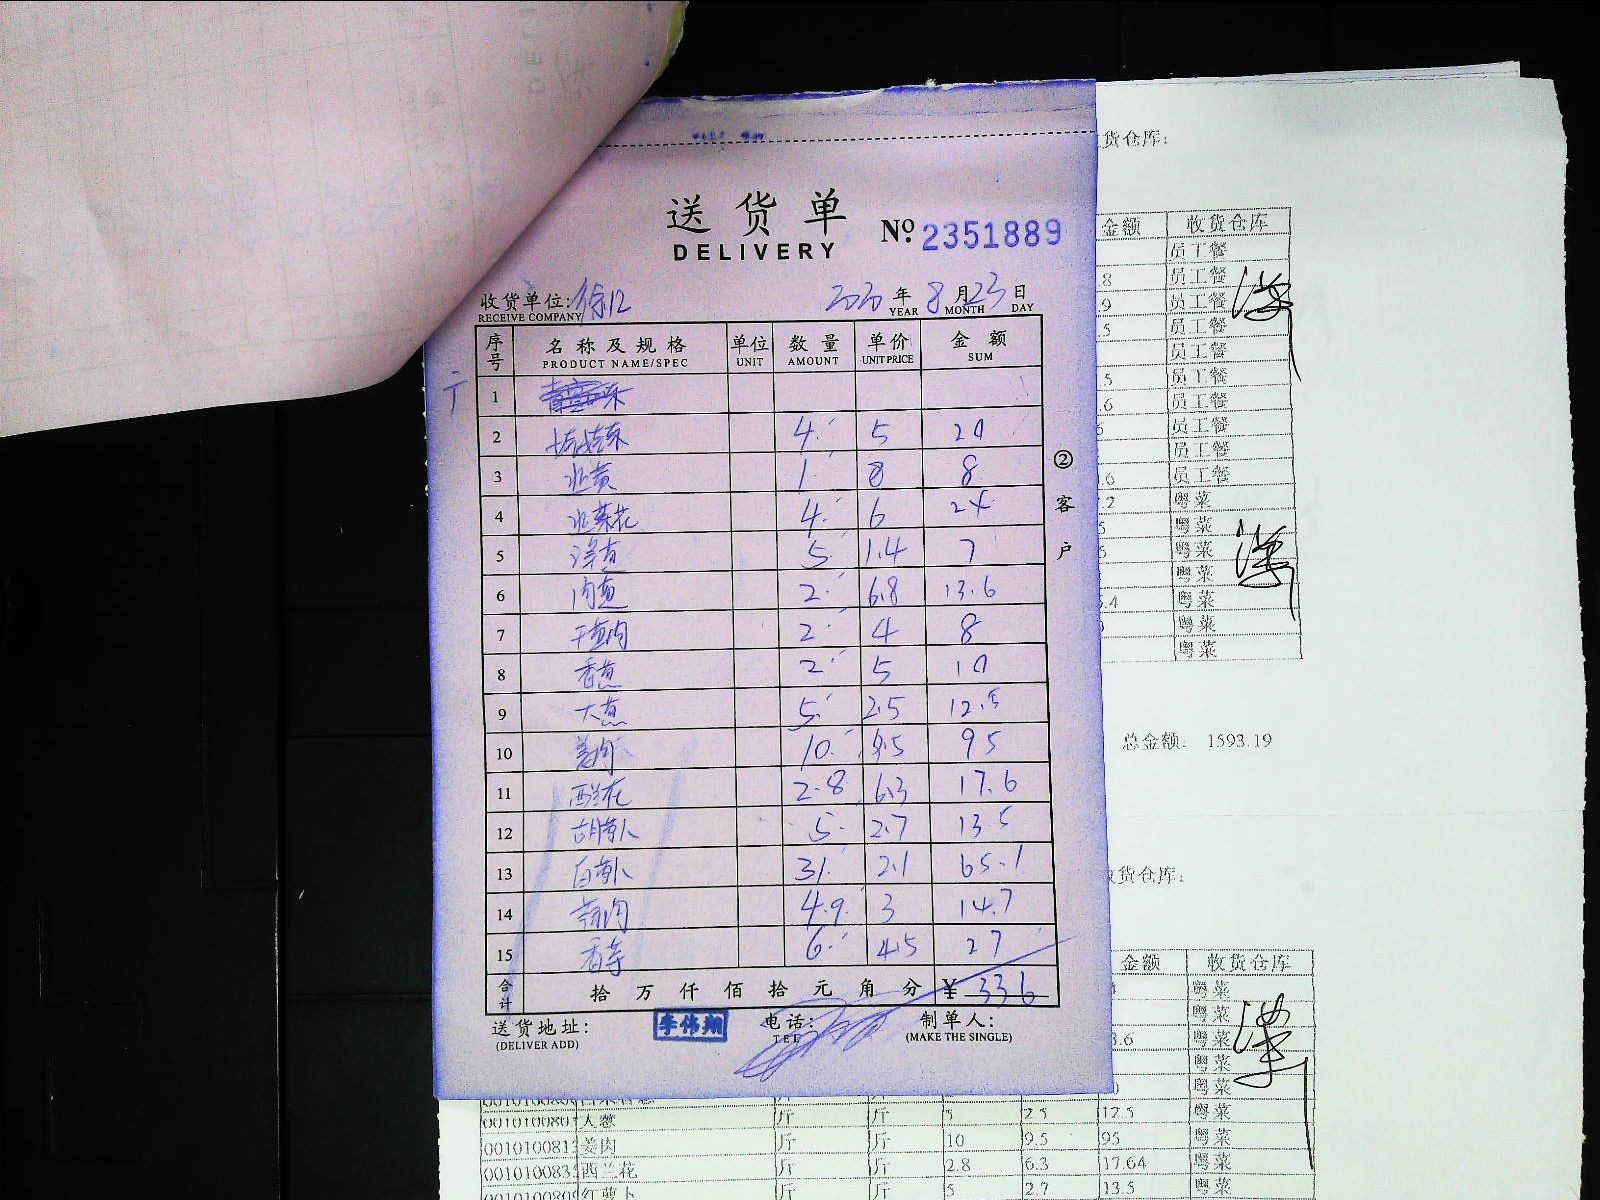 送货单
DELIVERY
No. 2351889
收货单位: 徐汇 2020年8月23日
RECEIVE COMPANY YEAR MONTH DAY
序号 名称及规格 单位 数量 单价 金额
PRODUCT NAME/SPEC UNIT AMOUNT UNIT PRICE SUM
1
2 4 5 20
3 韭黄 1 8 8
4 韭菜花 4 6 24
5 洋葱 5 1.4 7
6 肉葱 2 6.8 13.6
7 干葱肉 2 4 8
8 香葱 2 5 10
9 大葱 5 2.5 12.5
10 姜肉 10 9.5 95
11 西兰花 2.8 6.3 17.6
12 胡萝卜 5 2.7 13.5
13 白萝卜 31 2.1 65.1
14 4.9 3 14.7
15 香芋 6 4.5 27
合计 拾万仟佰拾元角分 ¥336
送货地址: 李伟翔 电话: 制单人:
(DELIVER ADD) TEL (MAKE THE SINGLE)
②客户
货仓库:
金额 收货仓库
员工餐
.8 员工餐
.9 员工餐
.5 员工餐
员工餐
.5 员工餐
.6 员工餐
员工餐
员工餐
.6 员工餐
.2 粤菜
粤菜
粤菜
粤菜
.4 粤菜
粤菜
粤菜
总金额: 1593.19
收货仓库:
金额 收货仓库
粤菜
粤菜
3.6 粤菜
粤菜
粤菜
大葱 斤 斤 5 2.5 12.5 粤菜
姜肉 斤 斤 10 9.5 95 粤菜
西兰花 斤 斤 2.8 6.3 17.64 粤菜
红萝卜 斤 斤 5 2.7 13.5 粤菜